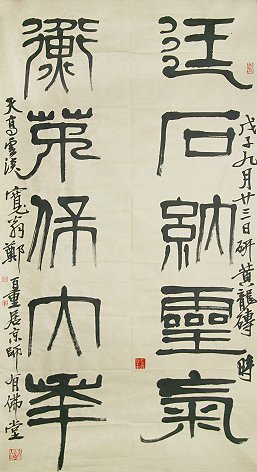 戊子九月廿三日研黃龍磚時
石納靈氣
衡茅保大年
天高雲淡寬翁鄭百重居京師有佛堂